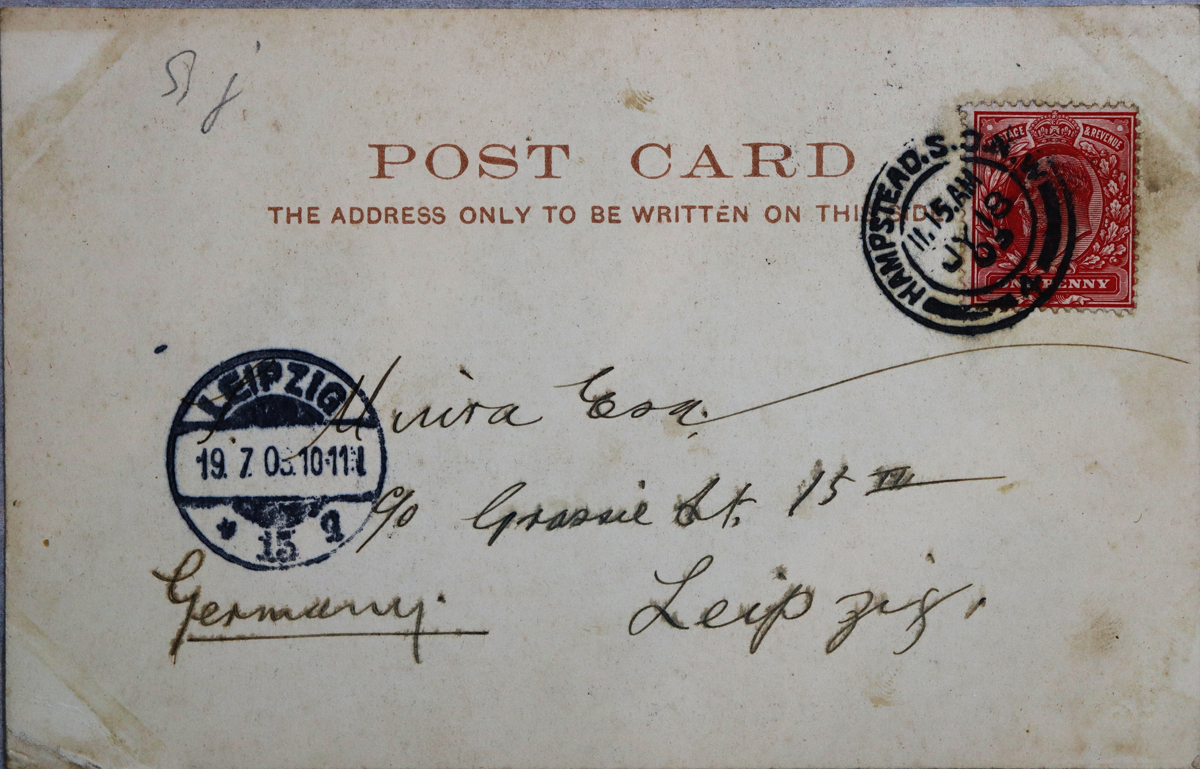 POST CARD
THE ADDRESS ONLY TO BE WRITTEN ON THIS SIDE
POSTAGE & REVENUE
ONE PENNY
HAMPSTEAD. S.O. N.W.
11.15 AM
JY 18
03
LEIPZIG
19. 7. 03. 10-11
15
Miura Esq.
c/o Grassie St. 15 III
Leipzig.
Germany.